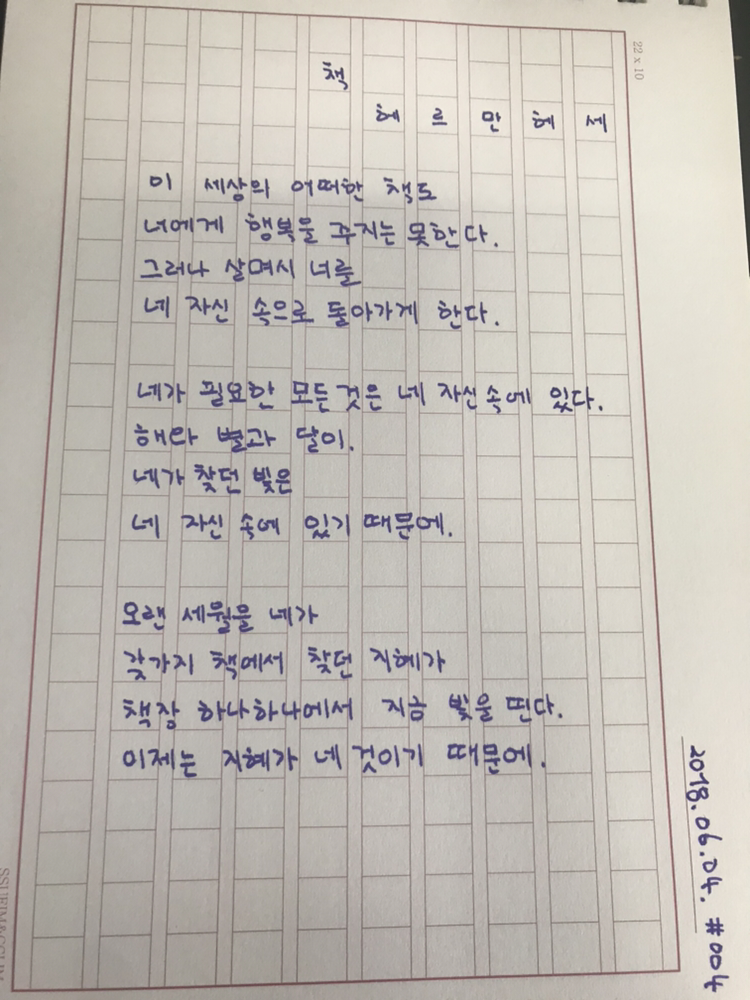 22 x 10
책
헤르만 헤세
이 세상의 어떠한 책도
너에게 행복을 주지는 못한다.
그러나 살며시 너를
네 자신 속으로 돌아가게 한다.
네가 필요한 모든 것은 네 자신 속에 있다.
해와 별과 달이.
네가 찾던 빛은
네 자신 속에 있기 때문에.
오랜 세월을 네가
갖가지 책에서 찾던 지혜가
책장 하나하나에서 지금 빛을 띤다.
이제는 지혜가 네 것이기 때문에.
2018.06.04. #004